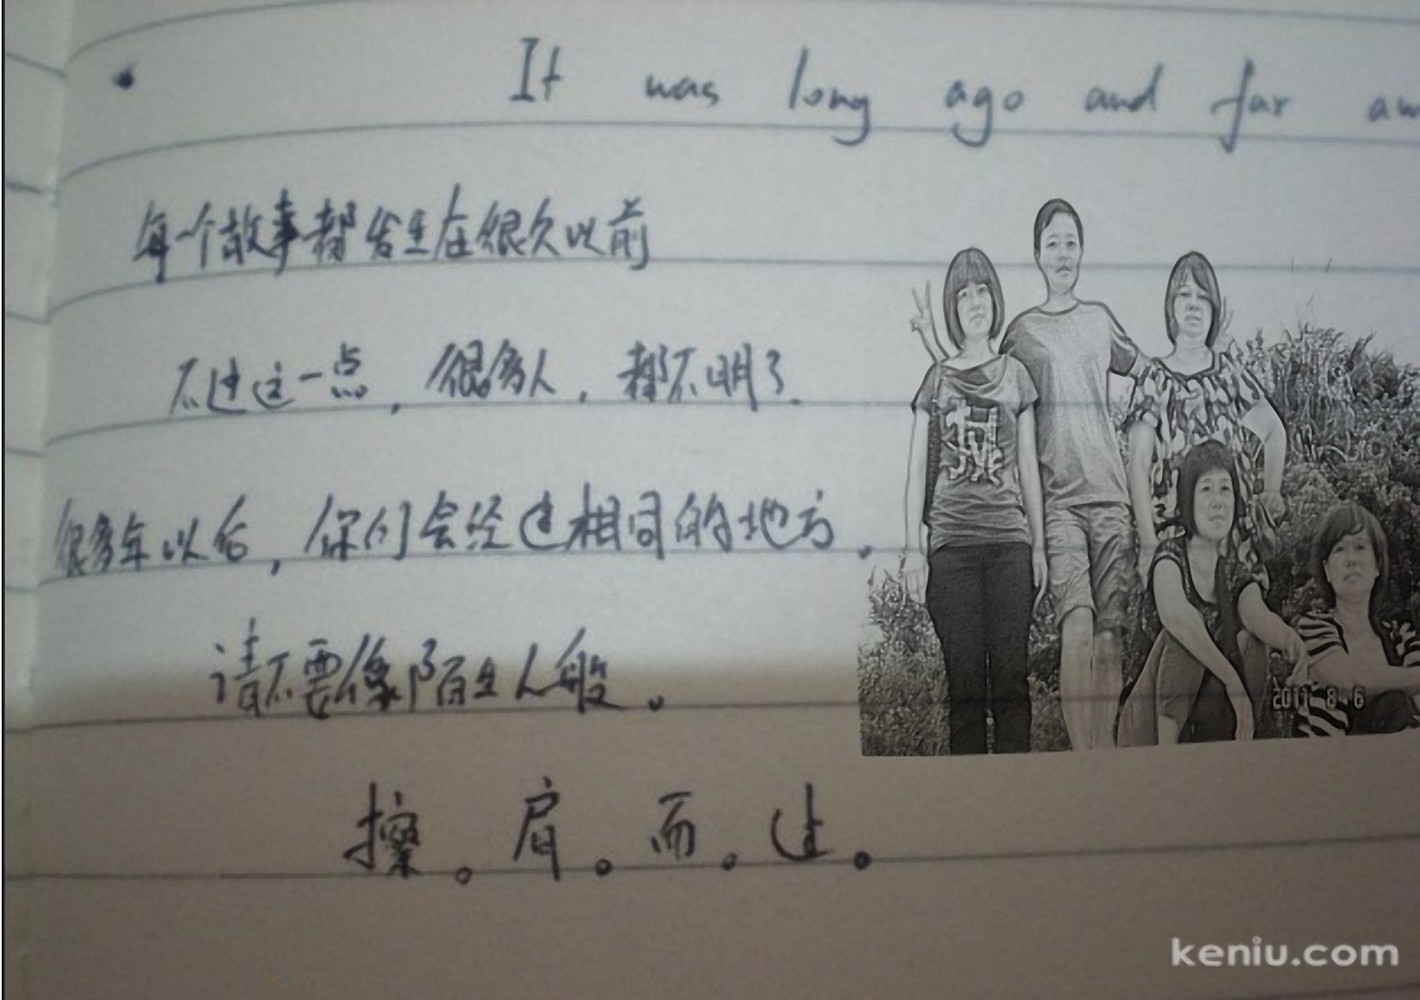 It was long ago and far aw
每个故事都发生在很久以前
不过这一点，很多人，都不明了.
很多年以后，你们会经过相同的地方.
请不要像陌生人般。
2011 8 6
擦。肩。而。过。
keniu.com